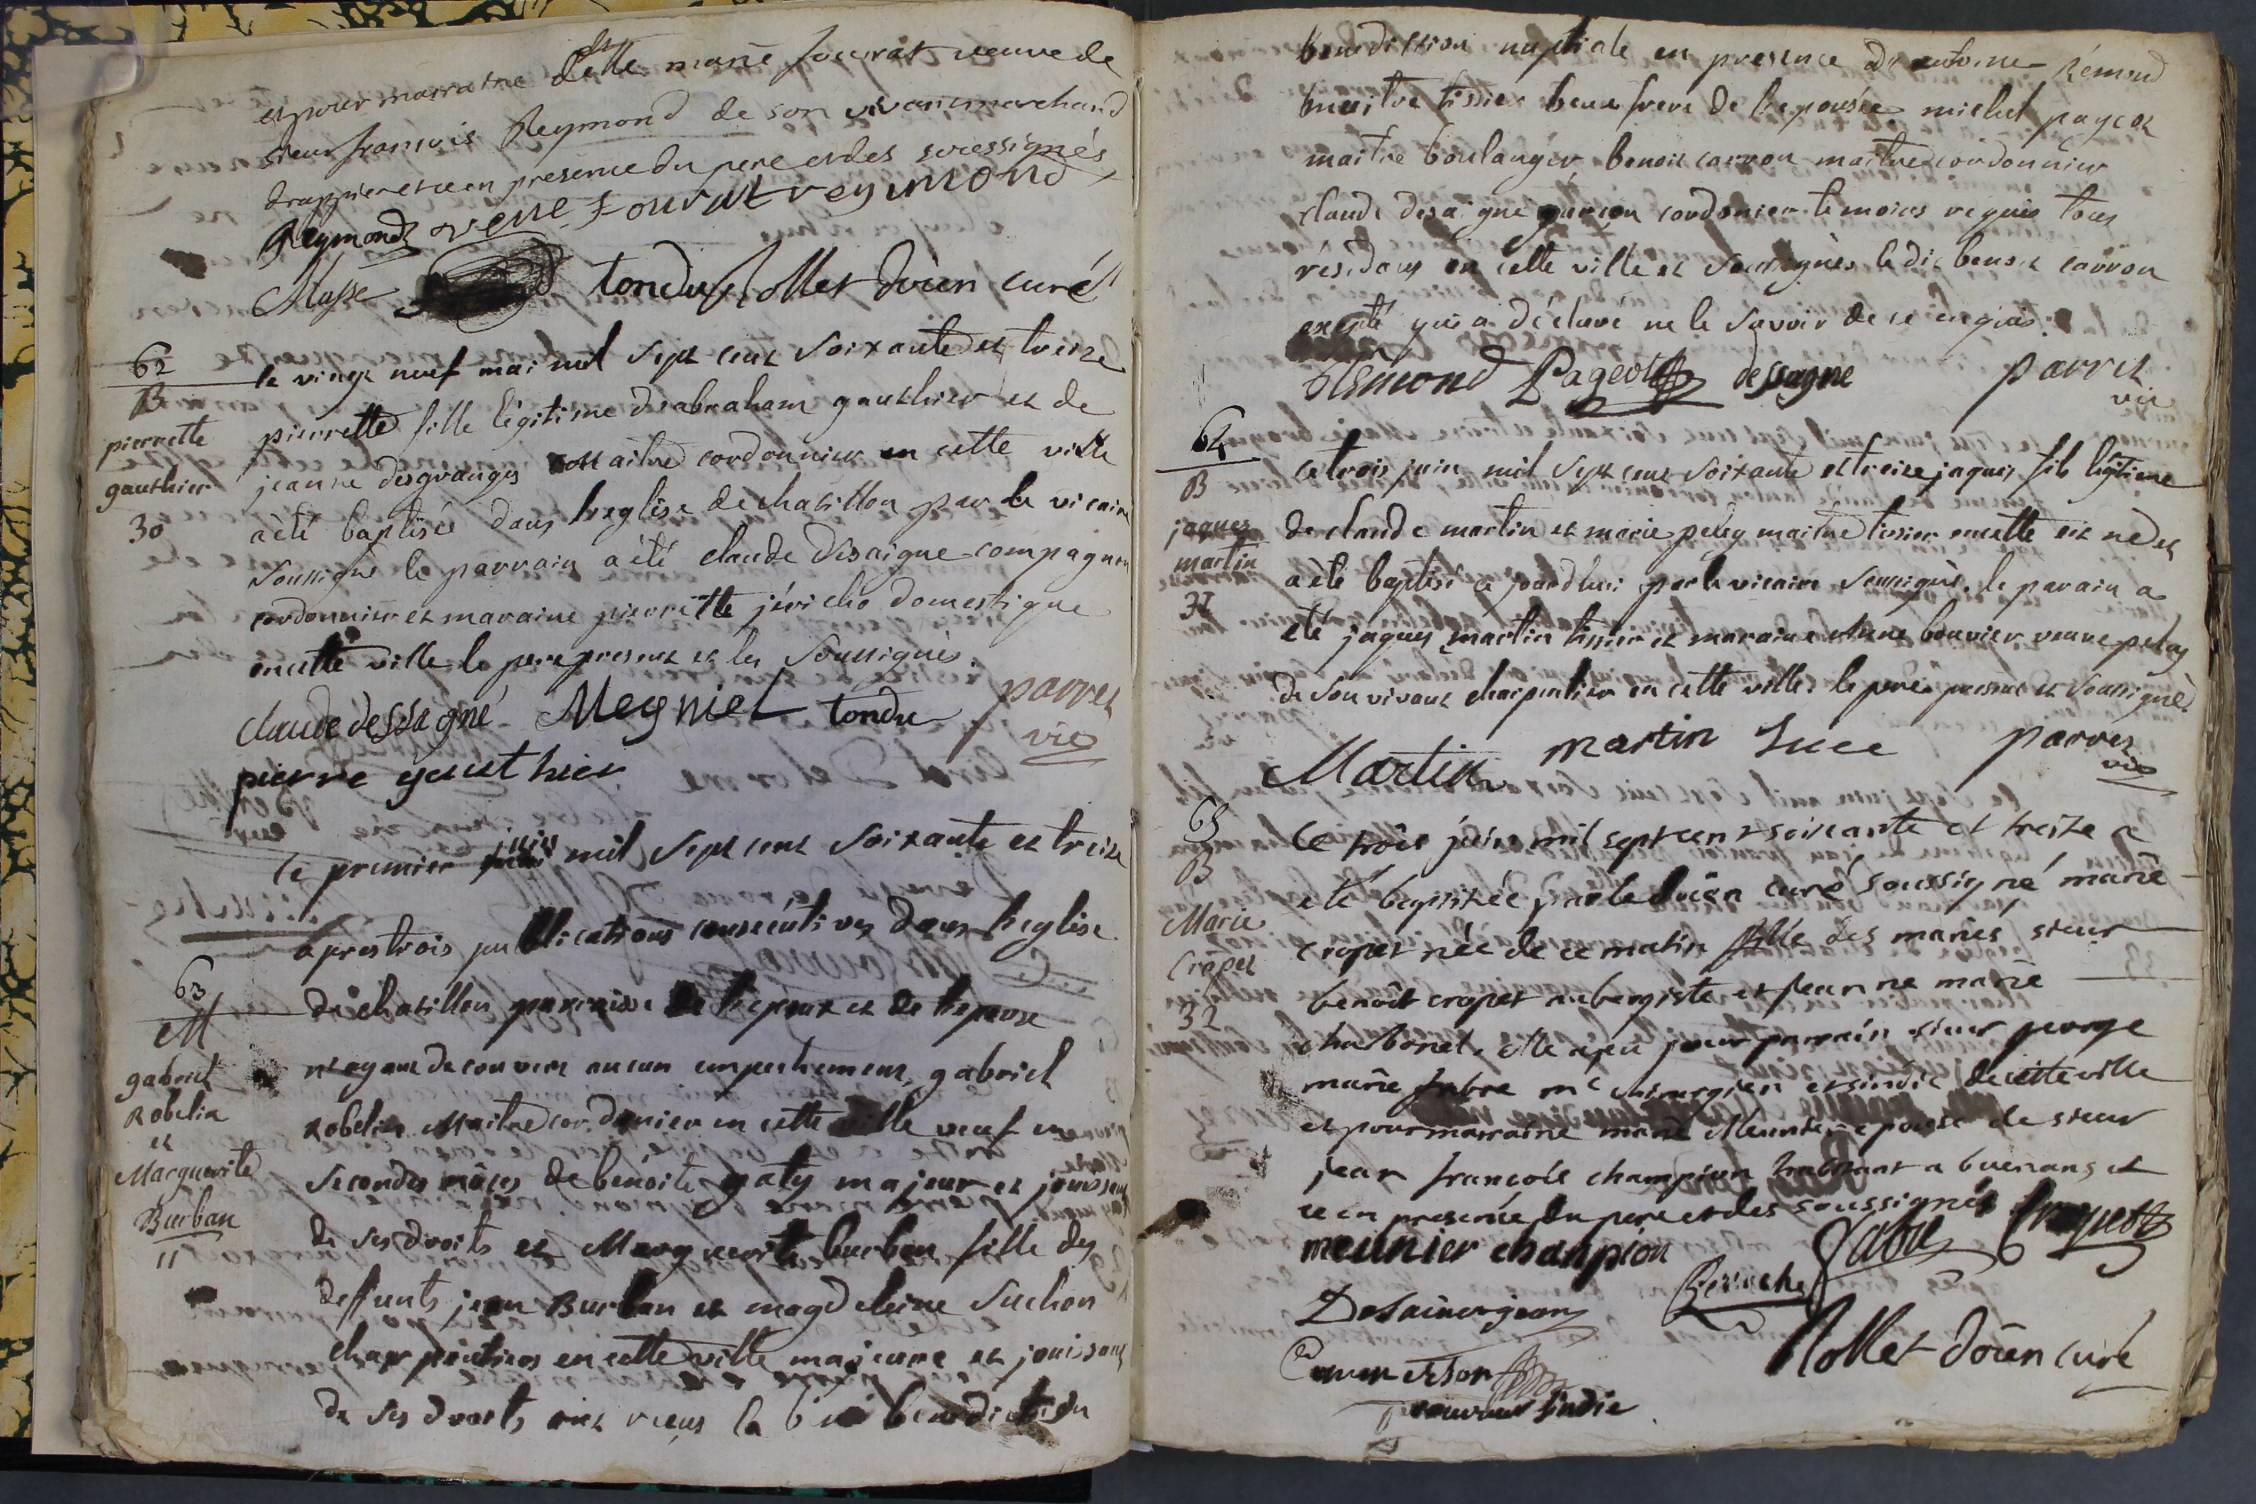 et pour marraine dlle marie fourat veuve de
sieur françois Reymond de son vivant marchand
drappier et ce en presence du pere et des soussignés
Reymond veuve fourat reymond
Masse tondu Nollet doïen curé
62
B
pierrette
gauthier
30
le vingt neuf mai mil sept cent soixante et treize
pierrette fille légitime d'abraham gauthier et de
jeanne desgranges maitre cordonnier en cette ville
a été baptisée dans l'eglise de chatillon par le vicaire
soussigné le parrain a été claude desaigne compagnon
cordonnier et maraine pierrette jéricho domestique
en cette ville le pere present et les soussignés.
claude dessagné Meyniel tondu parret
vic
pierre gauthier
63
M
gabriel
Robelin
et
Marguerite
Burban
11
le premier juin mil sept cent soixante et treize
apres trois publications consecutives dans l'eglise
de chatillon parroisse de l'epoux et de l'epouse
n'ayant decouvert aucun empechement, gabriel
Robelin Maitre cordonier en cette ville veuf en
secondes nôces de bénoite gaty majeur et jouissant
de ses droits et Marguerite burban fille des
deffunts jean Burban et magdeleine suchon
charpentiers en cette ville majeure et jouissant
de ses droits ont reçus la benediction
benediction nuptiale en presence de antoine Rémond
maitre tissier beau frere de l'epousée michel pageot
maitre boulanger benoit carron maitre cordonnier
claude desaigne garçon cordonier temoins requis tous
résidans en cette ville et soussignés ledit benoit carron
excepté qui a déclaré ne le savoir de ce enquis.
Rémond Pageot dessagne parret
vic
64
B
jaques
martin
31
ce trois juin mil sept cent soixante et treize jaques fils légitime
de claude martin et marie peley maitre tissier en cette est né et
a été baptisé ce jourdhui par le vicaire soussigné. le parain a
été jaques martin tissier et maraine Anne bouvier veuve peley
de son vivant charpentier en cette ville le pere present et soussigné.
Martin martin Luce parret
vic
65
B
Marie
Cropet
32
Ce trois juin mil sept cent soixante et treize a
eté baptisée par le doïen curé soussigné marie
cropet née de ce matin fille des mariés sieur
benoît cropet aubergiste et jeanne marie
charbonet. elle a eu pour parrain sieur george
marie fabre me chirurgien et sindic de cette ville
et pour marraine marie Meunier epouse de sieur
jean françois champion habitant a buenans et
ce en presence du pere et des soussignés
meunier chanpion fabre Cropet
Desainorjean Perruche
Commerson Nollet doïen curé
procureur sindic